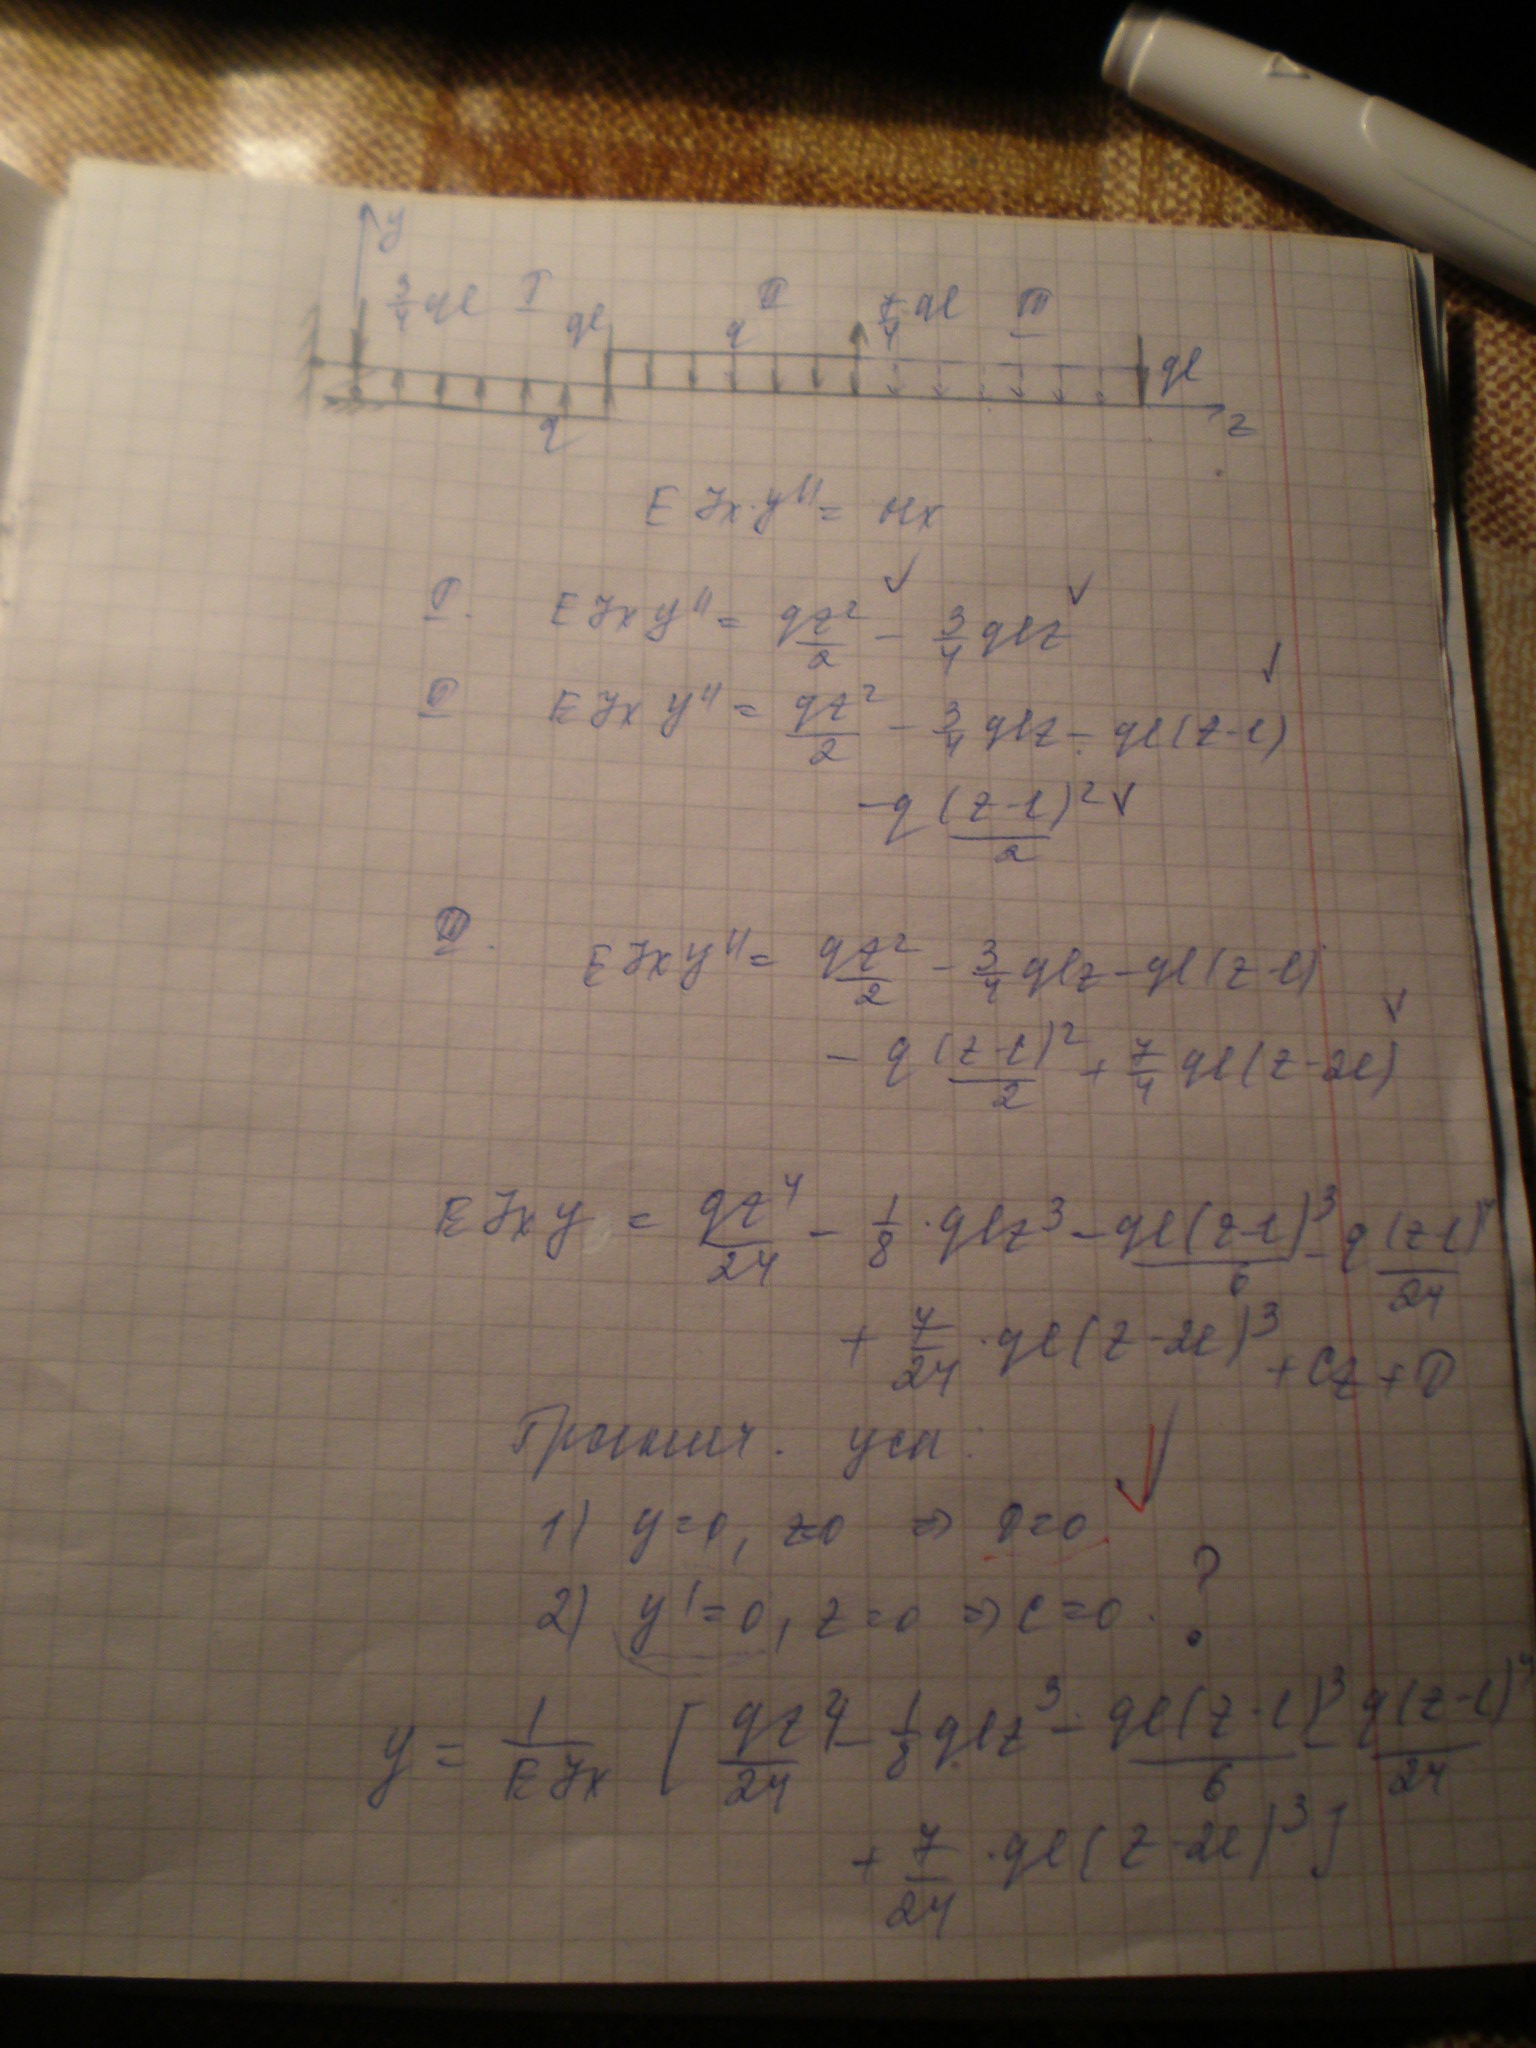 y
3/4 ql I ql q II 7/4 ql III ql
q z
EJx·y'' = Mx
I. EJx y'' = qz²/2 - 3/4 qlz
II EJx y'' = qz²/2 - 3/4 qlz - ql(z-l)
-q (z-l)²/2
III. EJx y'' = qz²/2 - 3/4 qlz - ql(z-l)
- q (z-l)²/2 + 7/4 ql(z-2l)
EJx y = qz⁴/24 - 1/8 · qlz³ - ql(z-l)³/6 - q (z-l)⁴/24
+ 7/24 · ql(z-2l)³ + Cz + D
Гранич. усл:
1) y=0, z=0 ⇒ D=0
2) y'=0, z=0 ⇒ C=0. ?
y = 1/EJx [ qz⁴/24 - 1/8 qlz³ - ql(z-l)³/6 - q(z-l)⁴/24
+ 7/24 · ql(z-2l)³]